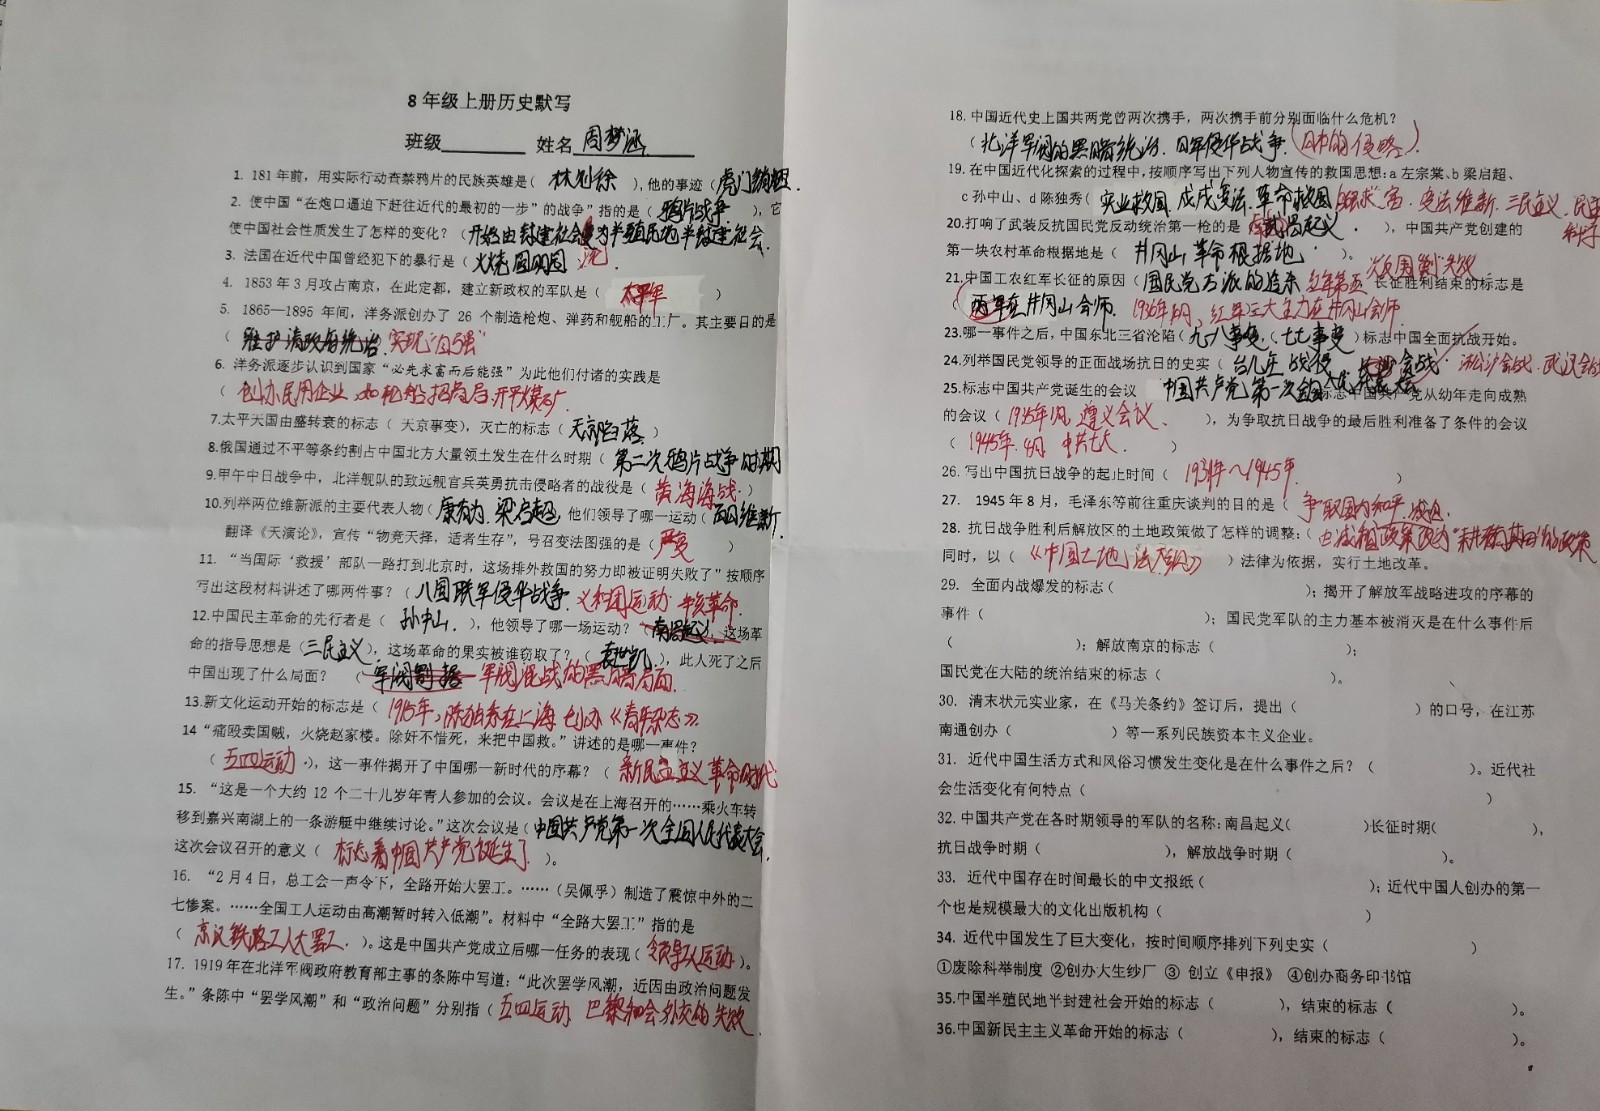 8年级上册历史默写
班级________ 姓名周梦涵
1. 181年前，用实际行动查禁鸦片的民族英雄是（ 林则徐 ），他的事迹（虎门销烟.
2. 使中国“在炮口逼迫下赶往近代的最初的一步”的战争”指的是（ 鸦片战争 ），它
使中国社会性质发生了怎样的变化？（开始由封建社会变为半殖民地半封建社会.
3. 法国在近代中国曾经犯下的暴行是（ 火烧圆明园
4. 1853年3月攻占南京，在此定都，建立新政权的军队是（ 太平军 ）
5. 1865—1895 年间，洋务派创办了 26 个制造枪炮、弹药和舰船的工厂。其主要目的是
（ 维护清政府统治. 实现“自强”
6. 洋务派逐步认识到国家“必先求富而后能强”为此他们付诸的实践是
（ 创办民用企业，如轮船招商局.开平煤矿.
7.太平天国由盛转衰的标志（ 天京事变），灭亡的标志（天京陷落. ）
8.俄国通过不平等条约割占中国北方大量领土发生在什么时期（ 第二次鸦片战争时期
9.甲午中日战争中，北洋舰队的致远舰官兵英勇抗击侵略者的战役是（ 黄海海战. ）
10.列举两位维新派的主要代表人物（康有为. 梁启超，他们领导了哪一运动（戊戌维新.
翻译《天演论》，宣传“物竞天择，适者生存”，号召变法图强的是（严复 ）
11. “当国际‘救援’部队一路打到北京时，这场排外救国的努力即被证明失败了”按顺序
写出这段材料讲述了哪两件事？（ 八国联军侵华战争. 义和团运动 辛亥革命.
12.中国民主革命的先行者是（ 孙中山. ），他领导了哪一场运动？（南昌起义），这场革
命的指导思想是（三民主义），这场革命的果实被谁窃取了？（ 袁世凯.），此人死了之后
中国出现了什么局面？ （ 军阀割据 军阀混战的黑暗局面.
13.新文化运动开始的标志是（ 1915年，陈独秀在上海创办《青年杂志》.
14“痛殴卖国贼，火烧赵家楼。除奸不惜死，来把中国救。”讲述的是哪一事件？
（ 五四运动 .），这一事件揭开了中国哪一新时代的序幕？（ 新民主主义革命时代
15. “这是一个大约 12 个二十几岁年青人参加的会议。会议是在上海召开的……乘火车转
移到嘉兴南湖上的一条游艇中继续讨论。”这次会议是（中国共产党第一次全国人民代表大会.
这次会议召开的意义（ 标志着中国共产党诞生了 ）。
16. “2月4日，总工会一声令下，全路开始大罢工。……（吴佩孚）制造了震惊中外的二
七惨案。……全国工人运动由高潮暂时转入低潮”。材料中“全路大罢工”指的是
（ 京汉铁路工人大罢工. ）。这是中国共产党成立后哪一任务的表现（领导工人运动）。
17. 1919年在北洋军阀政府教育部主事的条陈中写道：“此次罢学风潮，近因由政治问题发
生。”条陈中“罢学风潮”和“政治问题”分别指（ 五四运动 巴黎和会外交的失败
18. 中国近代史上国共两党曾两次携手，两次携手前分别面临什么危机？
（ 北洋军阀的黑暗统治. 日军侵华战争（日本的侵略.）.
19. 在中国近代化探索的过程中，按顺序写出下列人物宣传的救国思想：a 左宗棠、b 梁启超、
c 孙中山、d 陈独秀（ 实业救国 戊戌变法. 革命救国 自强求富. 变法维新. 三民主义. 民主
科学
20.打响了武装反抗国民党反动统治第一枪的是（南昌起义 ），中国共产党创建的
第一块农村革命根据地是（ 井冈山革命根据地 ）。
21.中国工农红军长征的原因（国民党右派的追杀 红军第五次“围剿”失败 长征胜利结束的标志是
（两军在井冈山会师. 1936年10月，红军三大主力在井冈山会师
23.哪一事件之后，中国东北三省沦陷（九一八事变，（七七事变）标志中国全面抗战开始。
24.列举国民党领导的正面战场抗日的史实（ 台儿庄战役 长沙会战. 淞沪会战. 武汉会战
25.标志中国共产党诞生的会议 中国共产党第一次全国人民代表大会 标志中国共产党从幼年走向成熟
的会议（ 1935年1月. 遵义会议. ），为争取抗日战争的最后胜利准备了条件的会议
（ 1945年.4月 中共七大. ）
26. 写出中国抗日战争的起止时间（ 1931年～1945年. ）
27. 1945年8月，毛泽东等前往重庆谈判的目的是（ 争取国内和平.
28. 抗日战争胜利后解放区的土地政策做了怎样的调整：（ 由减租政策改为“耕者有其田”的政策
同时，以（ 《中国土地法大纲》 ）法律为依据，实行土地改革。
29. 全面内战爆发的标志（ ）；揭开了解放军战略进攻的序幕的
事件（ ）；国民党军队的主力基本被消灭是在什么事件后
（ ）；解放南京的标志（ ）；
国民党在大陆的统治结束的标志（ ）。
30. 清末状元实业家，在《马关条约》签订后，提出（ ）的口号，在江苏
南通创办（ ）等一系列民族资本主义企业。
31. 近代中国生活方式和风俗习惯发生变化是在什么事件之后？（ ）。近代社
会生活变化有何特点（ ）
32.中国共产党在各时期领导的军队的名称：南昌起义（ ）长征时期（ ），
抗日战争时期（ ），解放战争时期（ ）。
33. 近代中国存在时间最长的中文报纸（ ）；近代中国人创办的第一
个也是规模最大的文化出版机构（ ）
34. 近代中国发生了巨大变化，按时间顺序排列下列史实（ ）
①废除科举制度 ②创办大生纱厂 ③ 创立《申报》 ④创办商务印书馆
35.中国半殖民地半封建社会开始的标志（ ），结束的标志（ ）。
36.中国新民主主义革命开始的标志（ ），结束的标志（ ）。